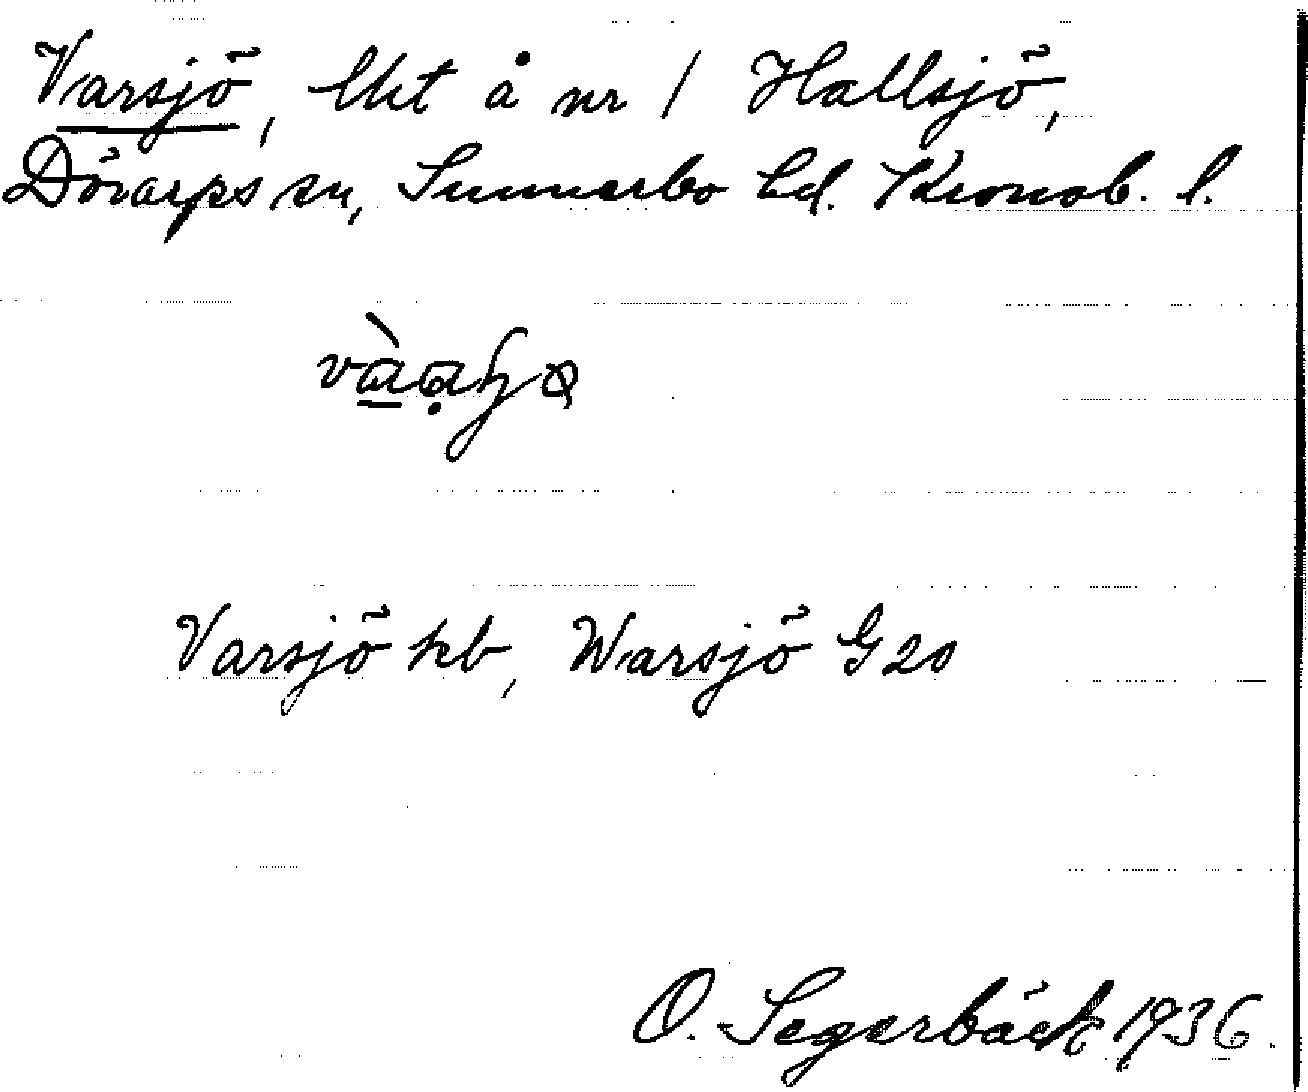 Varsjö, lht å nr 1 Hallsjö,
Dörarps sn, Sunnerbo hd. Kronob. l.
Varsjö kb, Warsjö G 20
O. Segerbäck 1936.